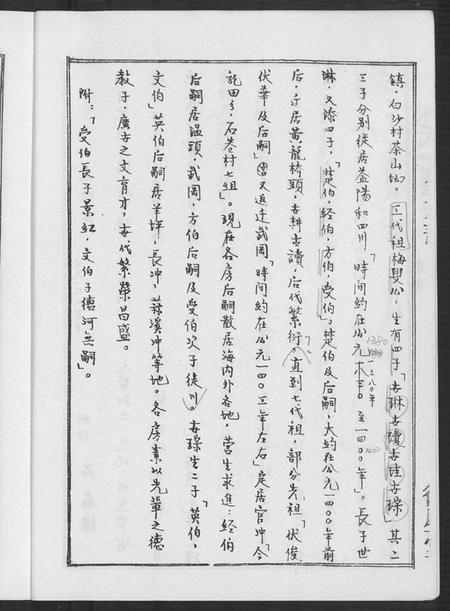 镇，白沙村茶山坳。三代祖梅叟公，生有四子「世琳世瓊世珪世琛」其二
三子分别徙居益陽和四川「時间约在公元 一三八〇年 至一四〇〇年」。長子世
琳，又添四子，「楚伯，经伯，方伯，受伯」。楚伯及后嗣，大约在公元一四〇〇年前
后，迁居黄龍桥頭，世耕世讀，后代繁衍。直到七代祖，部分先祖「伏俊
伏華及后嗣」又返迁武岡「時间约在公元一四〇三年左右」定居官冲「今
託田乡，石巷村七组」。现在各房后嗣散居海内外各地，营生求進：经伯
后嗣居温頭，武岡，方伯后嗣及受伯次子徙川。世琛生二子「英伯，
文伯」英伯后嗣居羊坪，長冲，蔴溪冲等地。各房素以先輩之德
教子，廣吉之文育才，世代繁榮昌盛。
附：「受伯長子景紅，文伯子德河無嗣」。
1380
1400